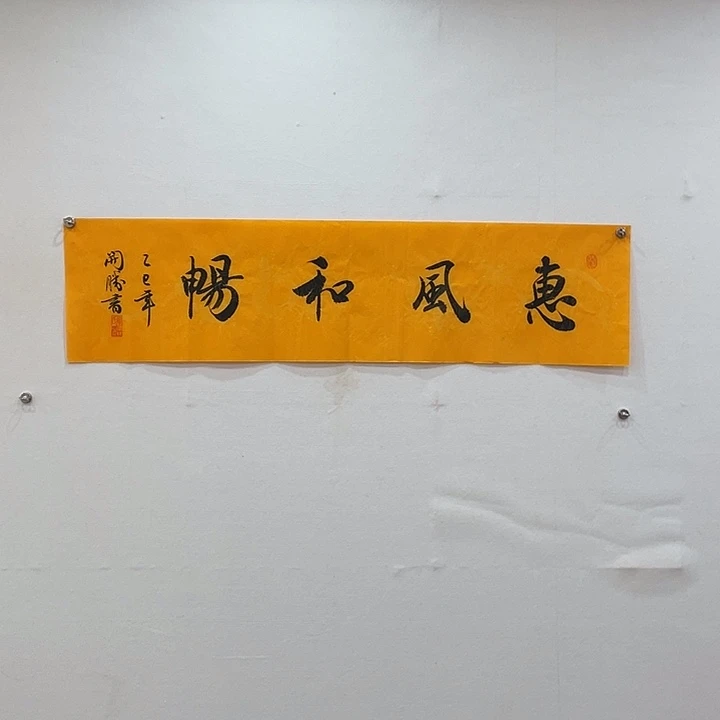 惠風和暢
乙巳年
開勝書